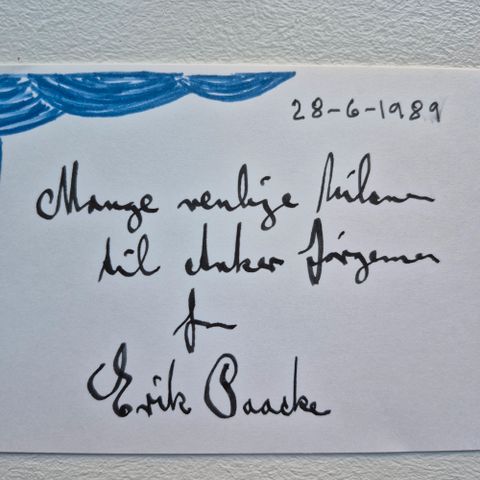 28-6-1989
Mange venlige hilsner
til Anker Jørgensen
fra
Erik Paacke